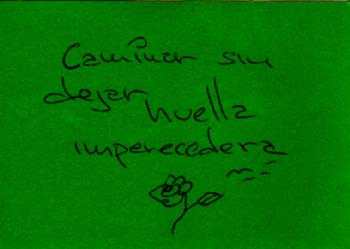 Caminar sin
dejar huella
imperecedera